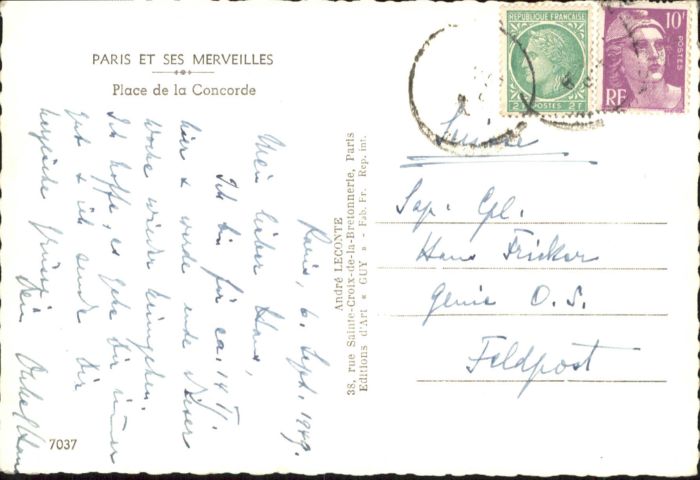 PARIS ET SES MERVEILLES
Place de la Concorde
Paris, 6. Sept. 1949.
Mein lieber Hans,
Ich bin für ca. 14 T.
hier & werde ende dieser
Woche wieder heimgehen.
Ich hoffe, es gehe Dir immer
gut & ich sende Dir
herzliche Grüsse
Dein Onkel Hans
7037
André LECONTE
38, rue Sainte-Croix-de-la-Bretonnerie, Paris
Editions d'Art « GUY » - Fab. Fr. Rep. int.
REPUBLIQUE FRANÇAISE
2F POSTES 2F
10F
POSTES
RF
Suisse
Sap. Gfl.
Hans Fricker
Genie O.S.
Feldpost